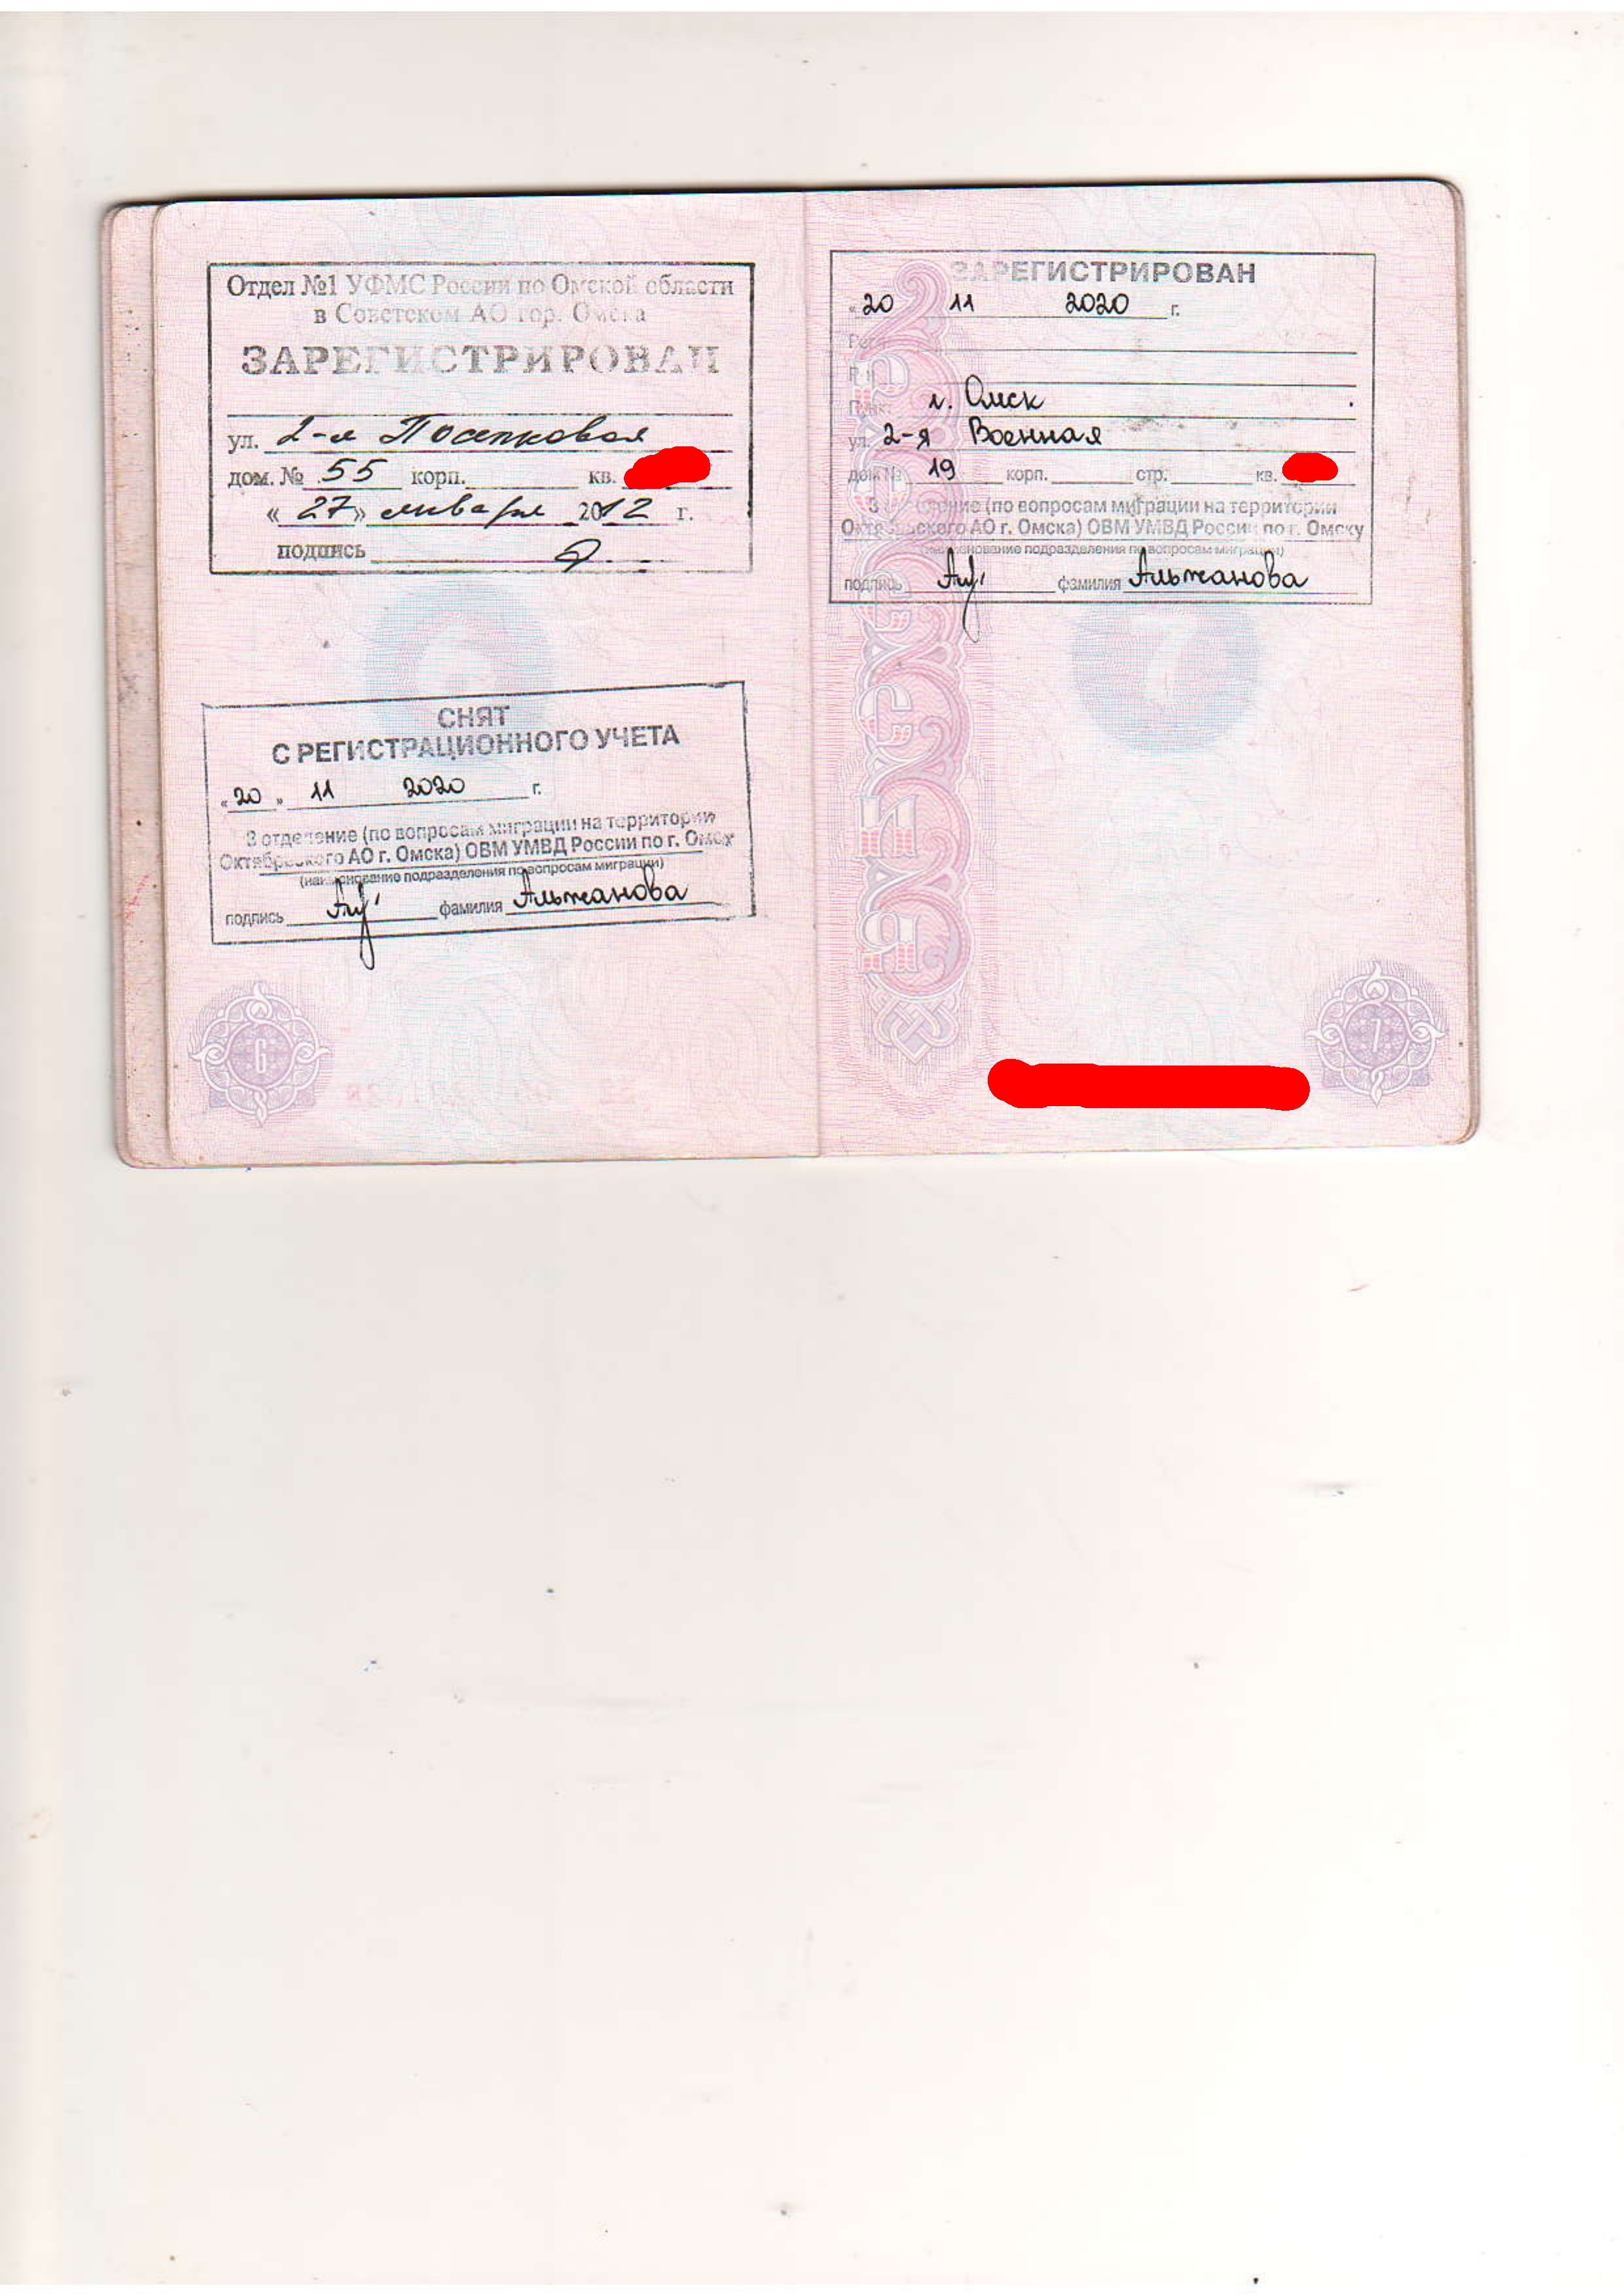 Отдел №1 УФМС России по Омской области
в Советском АО гор. Омска
ЗАРЕГИСТРИРОВАН
ул. 2-я Поселковая
дом. № 55 корп. кв.
« 27 » января 2012 г.
подпись
СНЯТ
С РЕГИСТРАЦИОННОГО УЧЕТА
« 20 » 11 2020 г.
3 отделение (по вопросам миграции на территории
Октябрьского АО г. Омска) ОВМ УМВД России по г. Омску
(наименование подразделения по вопросам миграции)
подпись фамилия Альжанова
6
ЗАРЕГИСТРИРОВАН
« 20 11 2020 г.
Рег
Р-н
Пункт г. Омск
ул. 2-я Военная
дом № 19 корп. стр. кв.
3 отделение (по вопросам миграции на территории
Октябрьского АО г. Омска) ОВМ УМВД России по г. Омску
(наименование подразделения по вопросам миграции)
подпись фамилия Альжанова
РОССИЯ
7
7